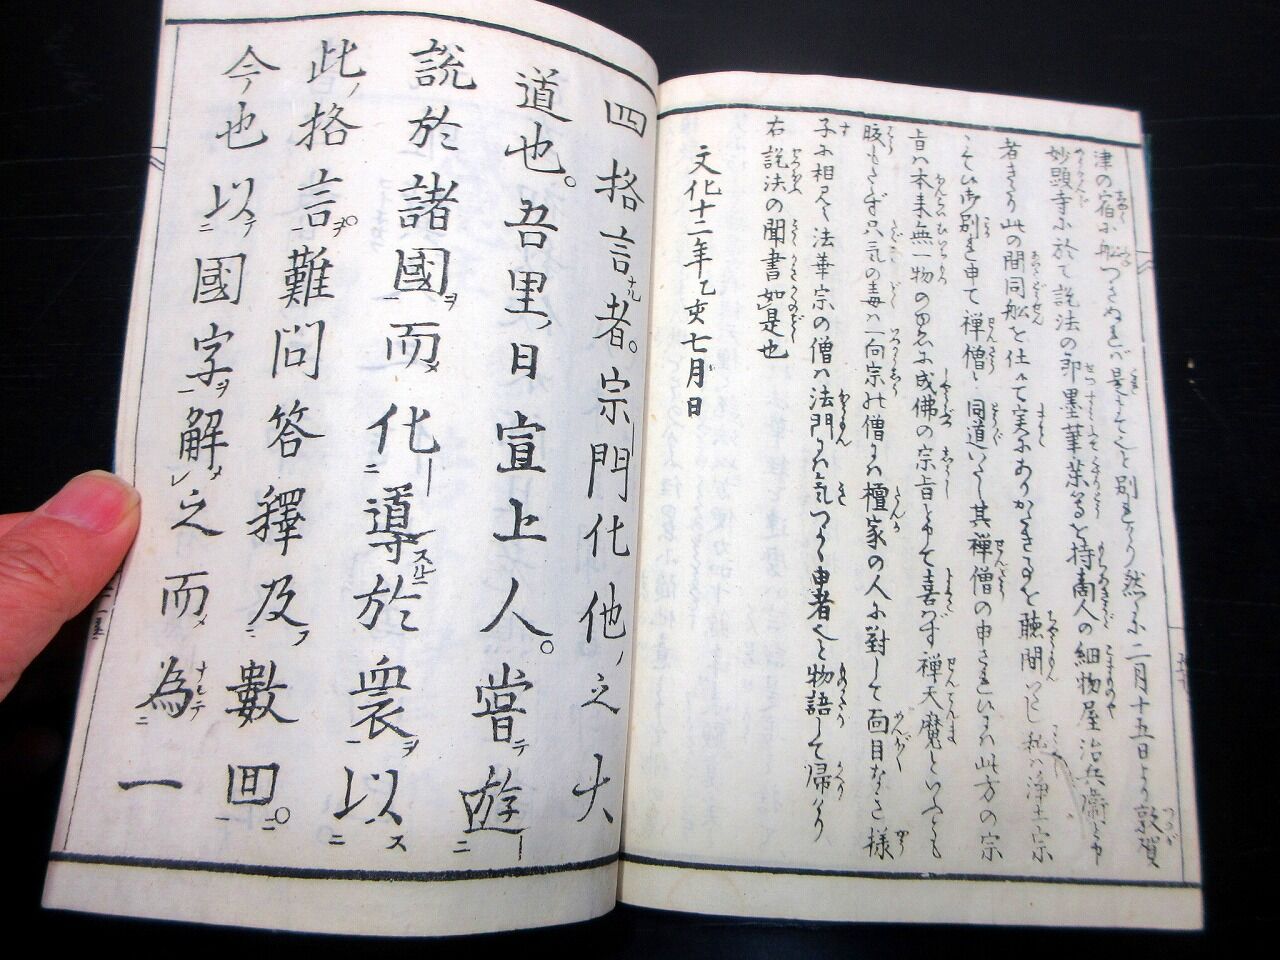 津の宿に舩つきぬれば是にて人々と別れたり然るに二月十五日より敦賀
妙顕寺に於て説法の即墨筆茶等を持商人の細物屋治兵衛と申
者きたり此の間同舩を仕りて実にありがたき事を聴聞いたし私は浄土宗
禅僧と同道いたし其禅僧の申され候は此方の宗
旨は本来無一物の心に成佛の宗旨と申て喜ばず禅天魔といへども
腹もたゝず只氣の毒は一向宗の僧には檀家の人に對して面目なき様
子に相見へ法華宗の僧は法門には氣つよく申者也と物語して帰けり
右説法の聞書如是也
文化十二年乙亥七月日
四格言者。宗門化他之大
道也。吾里日宣上人。嘗遊
説於諸國而化導於衆以
此格言難問答釋及數回。
今也以國字解之而為一